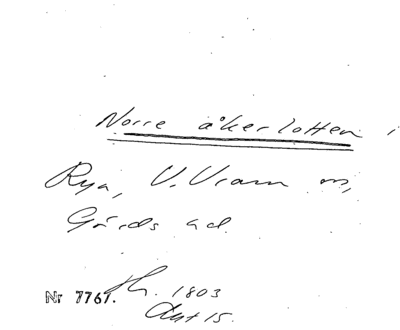 Norre åkerlotten i
Rya, V. Vram sn,
Gärds hd.
Nr 7767. 1803